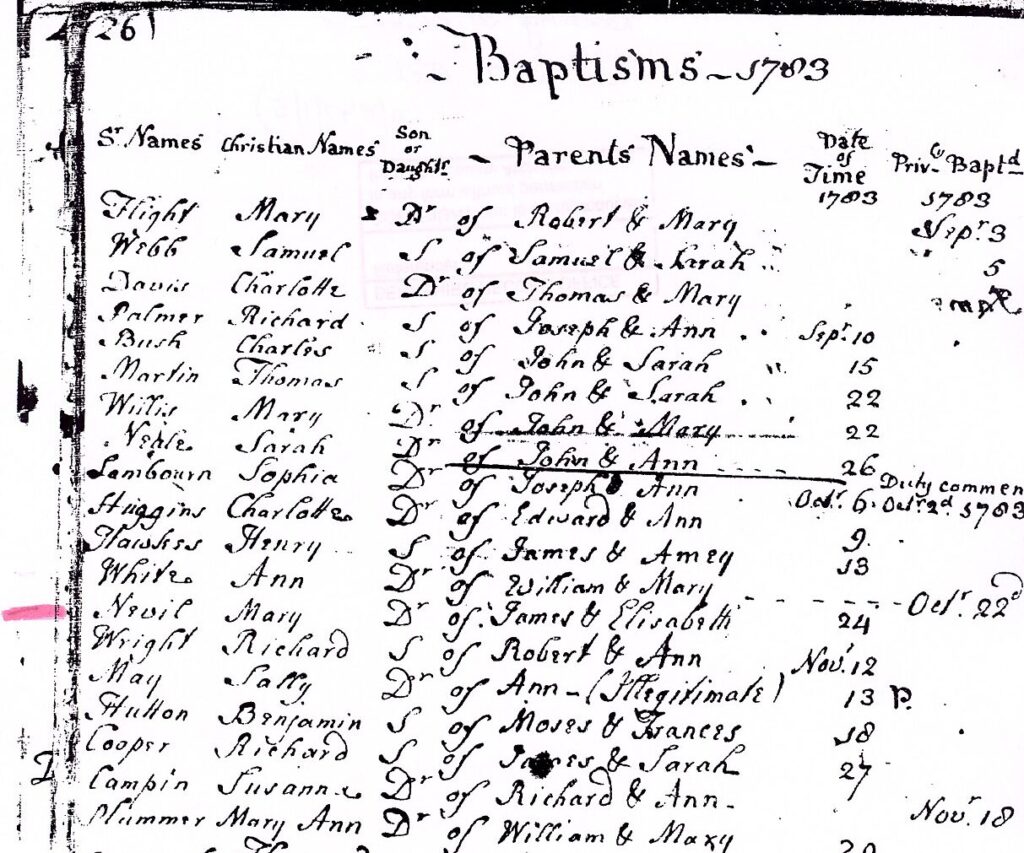 26)
Baptisms - 1783
Sr. Names Christian Names Son or Daughtr - Parents Names - Date of Time 1783 Privly Baptd 1783
Flight Mary Dr of Robert & Mary Sepr 3
Webb Samuel S of Samuel & Sarah 5
Davis Charlotte Dr of Thomas & Mary
Palmer Richard S of Joseph & Ann Sepr. 10
Bush Charles S of John & Sarah 15
Martin Thomas S of John & Sarah 22
Willis Mary Dr of John & Mary 22
Neale Sarah Dr of John & Ann 26
Lambourn Sophia Dr of Joseph & Ann Octr. 6. Duty commen Octr 2d 1783
Huggins Charlotte Dr of Edward & Ann 9.
Hawkes Henry S of James & Amey 13
White Ann Dr of William & Mary - - - - - - - Octr. 22d
Newil Mary Dr of. James & Elisabeth 24
Wright Richard S of Robert & Ann Novr. 12
May Sally Dr of Ann - (Illegitimate) 13 P.
Hutton Benjamin S of Moses & Frances 18
Cooper Richard S of James & Sarah 27
Campin Susanna Dr of Richard & Ann -
Plummer Mary Ann Dr of William & Mary Novr. 18